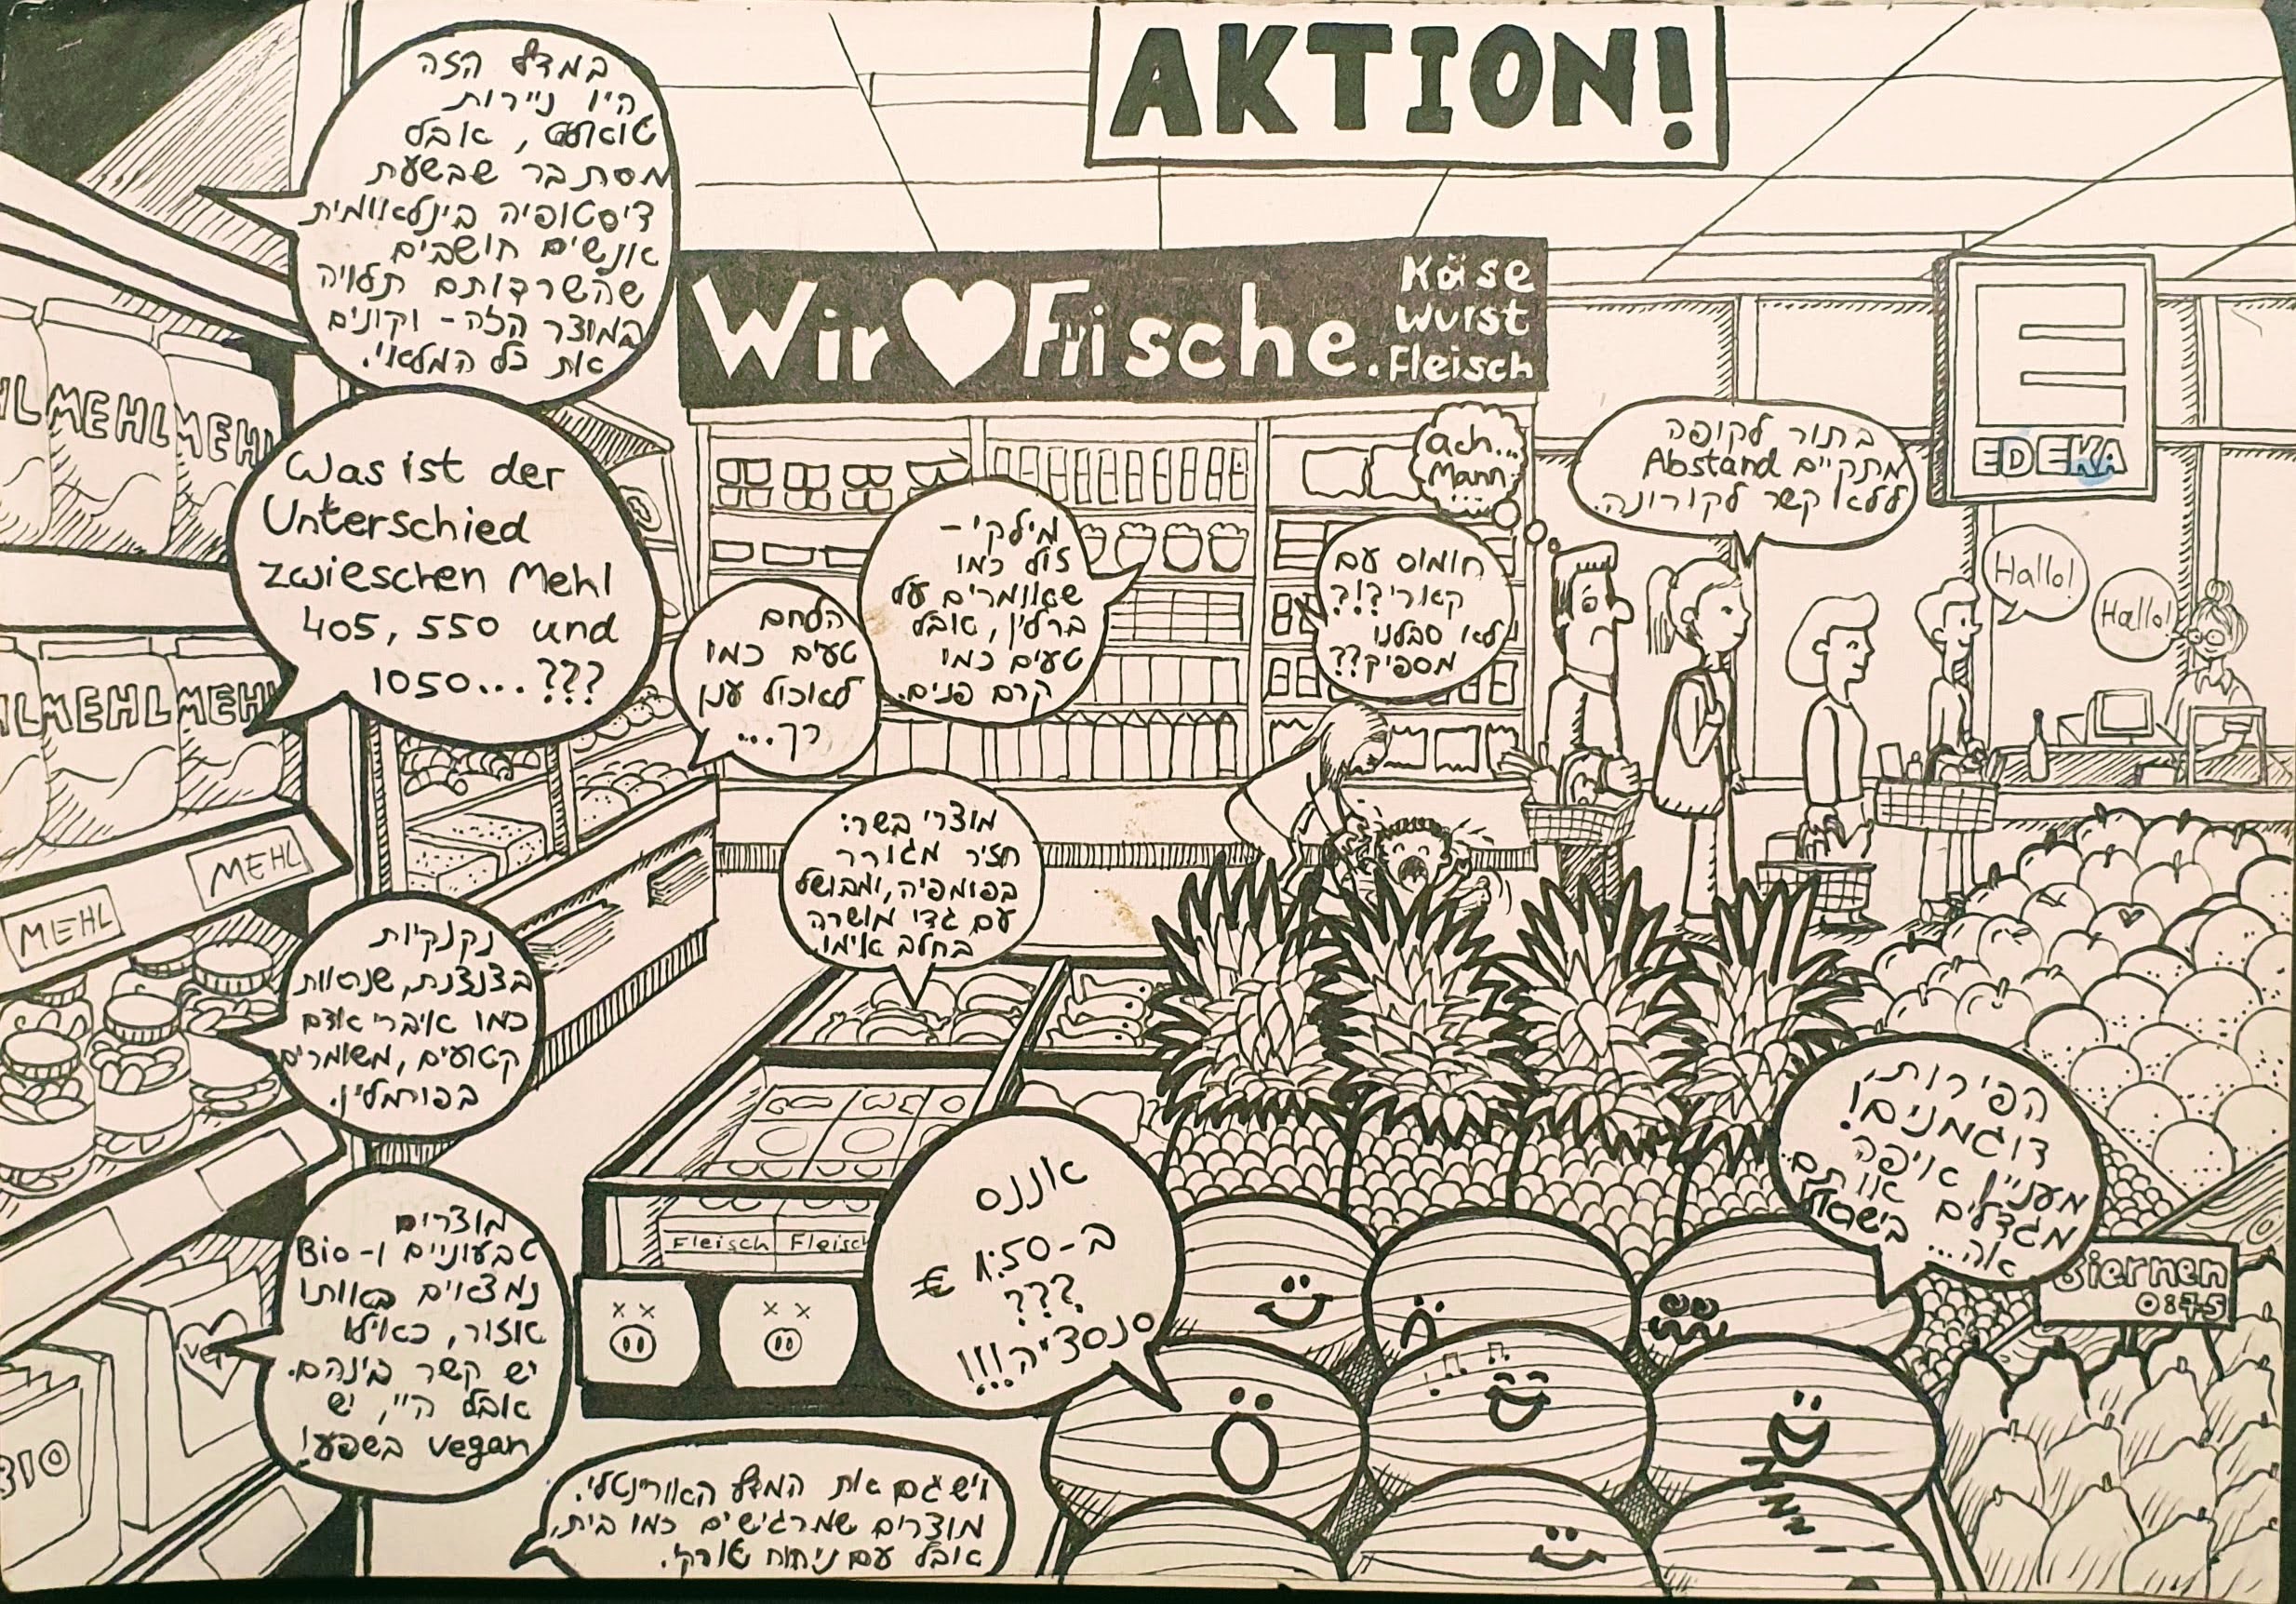 AKTION!
במדף הזה
היו ניירות
טואלט, אבל
מסתבר שבשעת
דיסטופיה בינלאומית
אנשים חושבים
שהשרדותם תלויה
במוצר הזה - וקונים
את כל המלאי.
Wir ♥ Frische.
Käse
Wurst
Fleisch
EDEKA
MEHL
MEHL
MEHL
Was ist der
Unterschied
zwieschen Mehl
405, 550 und
1050...???
ach...
Mann
...
בתור לקופה
מתקיים Abstand
ללא קשר לקורונה.
Hallo!
Hallo!
מילקי -
זול כמו
שאומרים על
ברלין, אבל
טעים כמו
קרם פנים.
חומוס עם
קארי?!?
לא סבלנו
מספיק??
הלחם
טעים כמו
לאכול ענן
רך...
MEHL
MEHL
MEHL
MEHL
MEHL
מוצרי בשר:
חזיר מגורר
בפומפיה, ומבושל
עם גדי מושרה
בחלב אימו
נקנקיות
בצנצנת, שנראות
כמו איברי אדם
קטועים, משומרים
בפורמלין.
הפירות,
דוגמנים!
מעניין איפה
מגדלים אותם
אה... בישראל
Fleisch Fleisch
אננס
ב-1:50 €
???
סנסציה!!!
Biernen
0:45
מוצרים
טבעוניים ו-Bio
נמצאים באותו
אזור, כאילו
יש קשר בינהם.
אבל היי, יש
vegan בשפע!
BIO
ויש גם את המדף האוריינטלי.
מוצרים שמרגישים כמו בית,
אבל עם ניחוח טורקי.